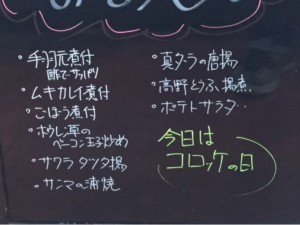 ・手羽元煮付
酢でサッパリ
・ムキカレイ煮付
・ごぼう煮付
・ホウレン草の
ベーコン玉子炒め
・サワラ タツタ揚
・サンマの蒲焼
・真ダラの唐揚
・高野とうふ 揚煮
・ポテトサラダ‥
今日は
コロッケの日